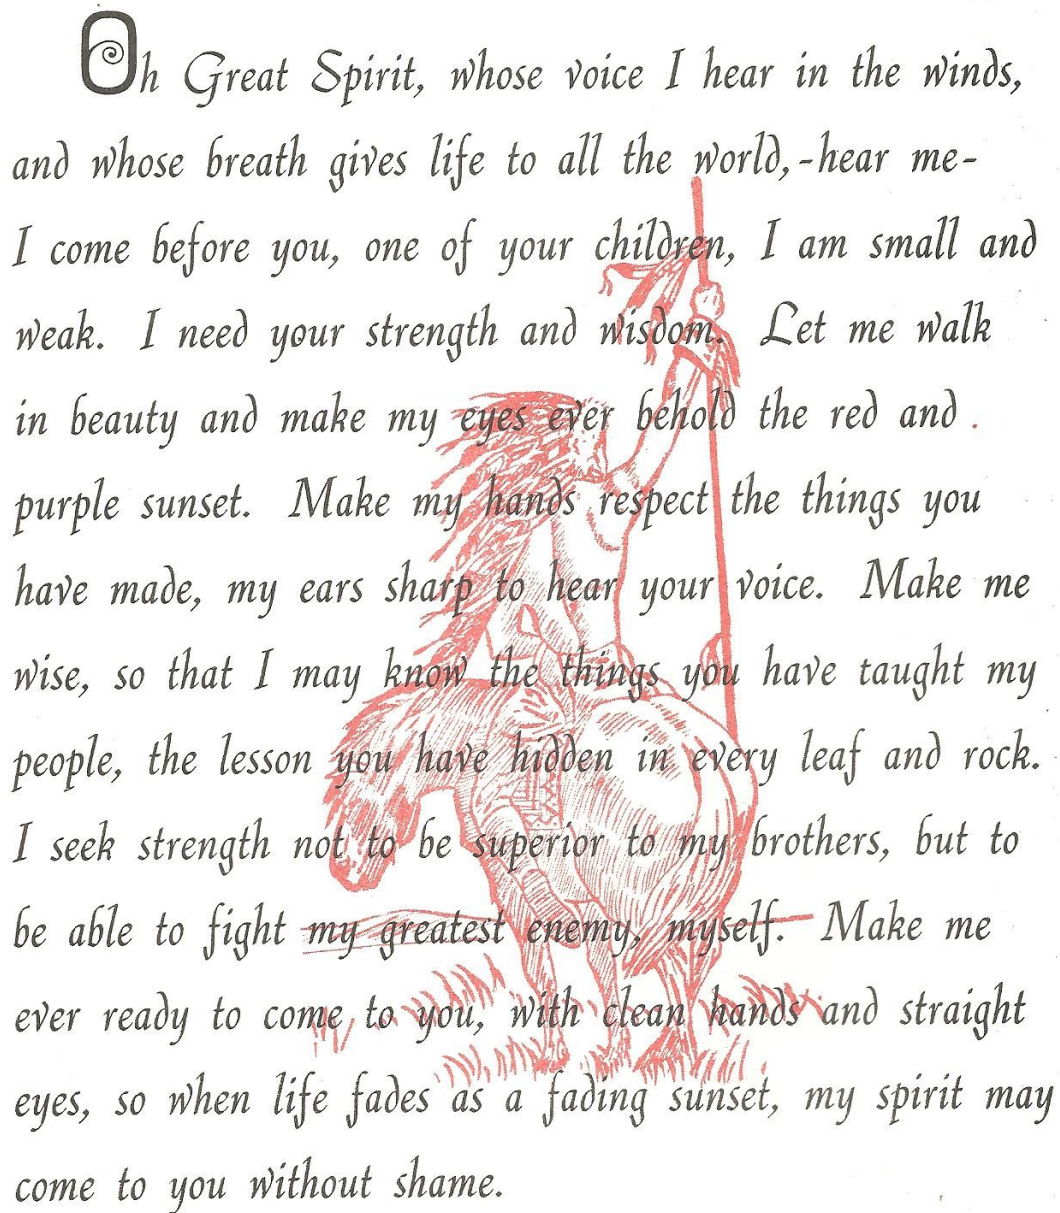 Oh Great Spirit, whose voice I hear in the winds,
and whose breath gives life to all the world,-hear me-
I come before you, one of your children, I am small and
weak. I need your strength and wisdom. Let me walk
in beauty and make my eyes ever behold the red and
purple sunset. Make my hands respect the things you
have made, my ears sharp to hear your voice. Make me
wise, so that I may know the things you have taught my
people, the lesson you have hidden in every leaf and rock.
I seek strength not to be superior to my brothers, but to
be able to fight my greatest enemy, myself. Make me
ever ready to come to you, with clean hands and straight
eyes, so when life fades as a fading sunset, my spirit may
come to you without shame.